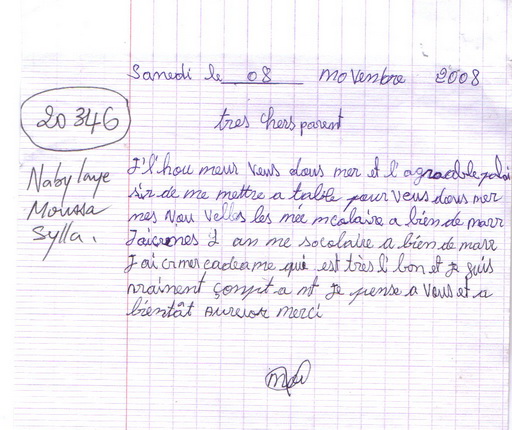 Samedi le 08 Novembre 2008
20 346
tres chers parent
Naby laye
Moussa
Sylla.
J'l'hou meus veus dous mer et l'agréable plai
sir de me mettre a table pour veus dous mer
mes Nou velles les mée mcolaire a bien de marr
J'aicrones l an me socolaire a bien de marr
J'ai crmer cadeame qui est très l' bon et je suis
vraiment compt a nt Je pense a vous et a
bientât Aurevor merci